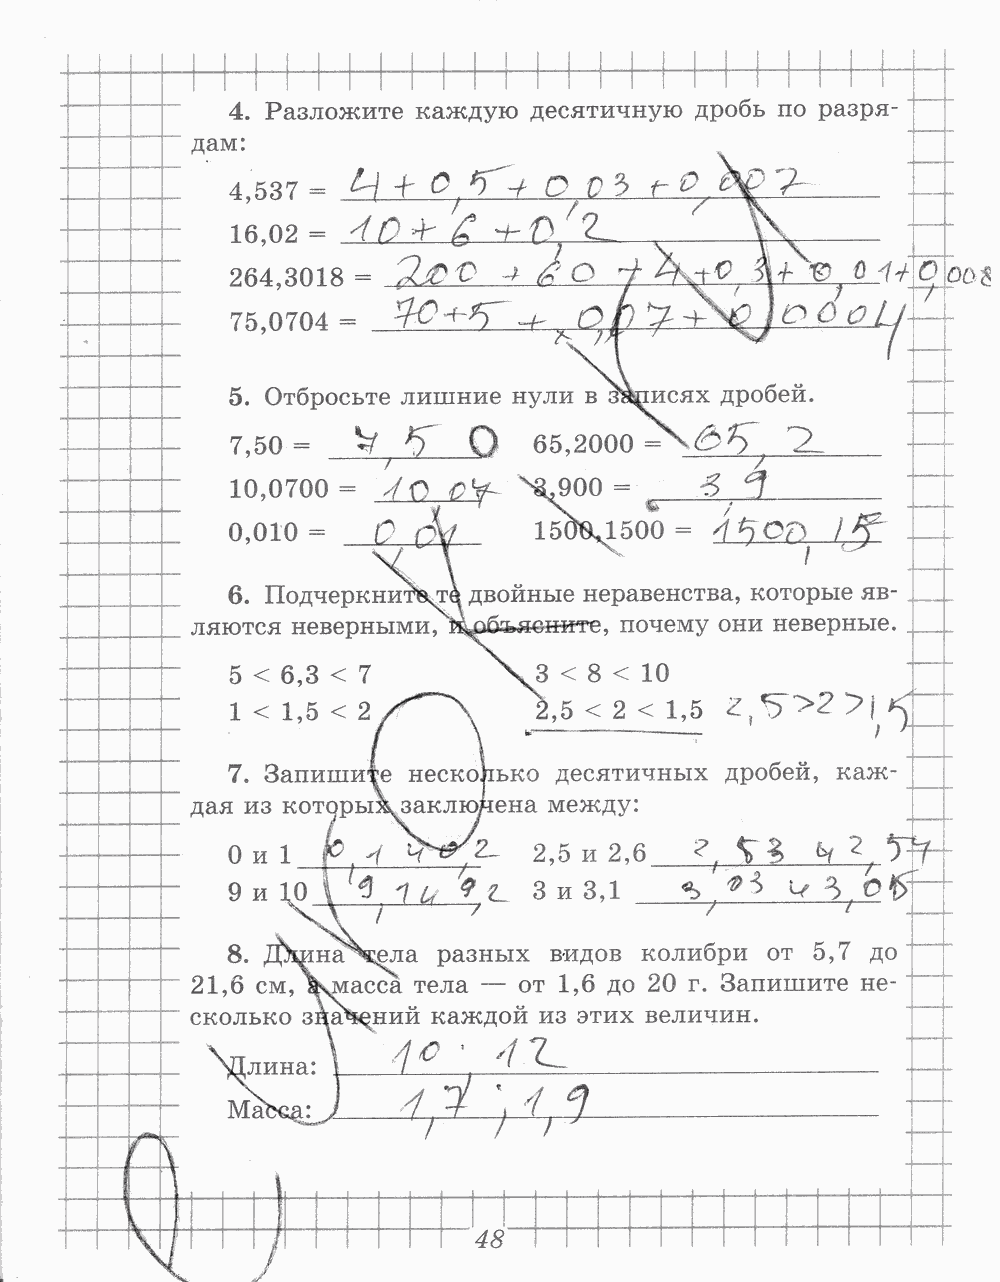 4. Разложите каждую десятичную дробь по разря-
дам:
4,537 = 4 + 0,5 + 0,03 + 0,007
16,02 = 10 + 6 + 0,2
264,3018 = 200 + 60 + 4 + 0,3 + 0,01 + 0,008
75,0704 = 70 + 5 + 0,07 + 0,0004
5. Отбросьте лишние нули в записях дробей.
7,50 = 7,5 0 65,2000 = 65,2
10,0700 = 10 07 3,900 = 3,9
0,010 = 0,01 1500,1500 = 1500,15
6. Подчеркните те двойные неравенства, которые яв-
ляются неверными, и объясните, почему они неверные.
5 < 6,3 < 7 3 < 8 < 10
1 < 1,5 < 2 2,5 < 2 < 1,5 2,5 > 2 > 1,5
7. Запишите несколько десятичных дробей, каж-
дая из которых заключена между:
0 и 1 0,1 и 0,2 2,5 и 2,6 2,53 и 2,54
9 и 10 9,1 и 9,2 3 и 3,1 3,03 и 3,05
8. Длина тела разных видов колибри от 5,7 до
21,6 см, а масса тела — от 1,6 до 20 г. Запишите не-
сколько значений каждой из этих величин.
Длина: 10; 12
Масса: 1,7; 1,9
48